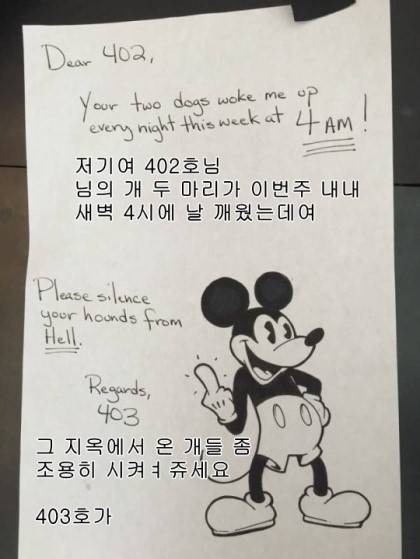 Dear 402,
Your two dogs woke me up
every night this week at 4 AM!
저기여 402호님
님의 개 두 마리가 이번주 내내
새벽 4시에 날 깨웠는데여
Please silence
your hounds from
Hell.
Regards,
403
그 지옥에서 온 개들 좀
조용히 시켜ㅕ쥬세요
403호가